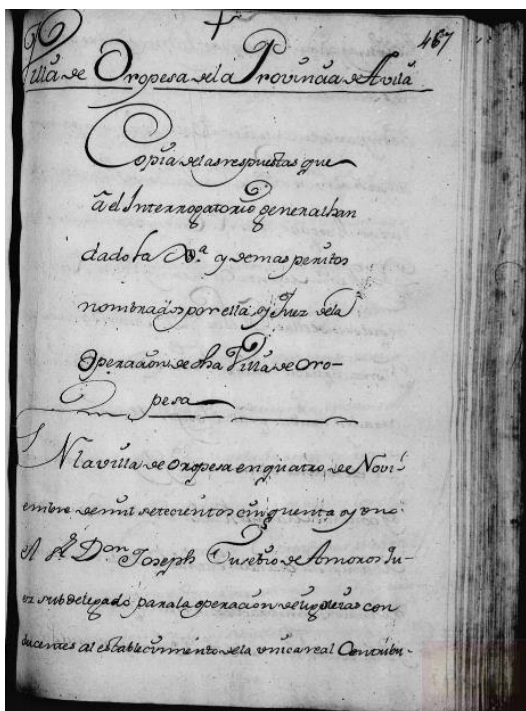 467
Villa de Oropesa de la Provincia de Avila
Copia de las respuestas que
a el Interrogatorio general han
dado la J.ª y demas peritos
nombrados por ella y Juez de la
Operacion de dha Villa de Oro-
pesa
EN la villa de Oropesa en quatro de Novi-
embre de mil setecientos cinquenta y uno
el Sr. Don Joseph Eusebio de Amoros Ju-
ez subdelegado para la operacion de con
ducentes al establecimiento de la unica real Contribu-